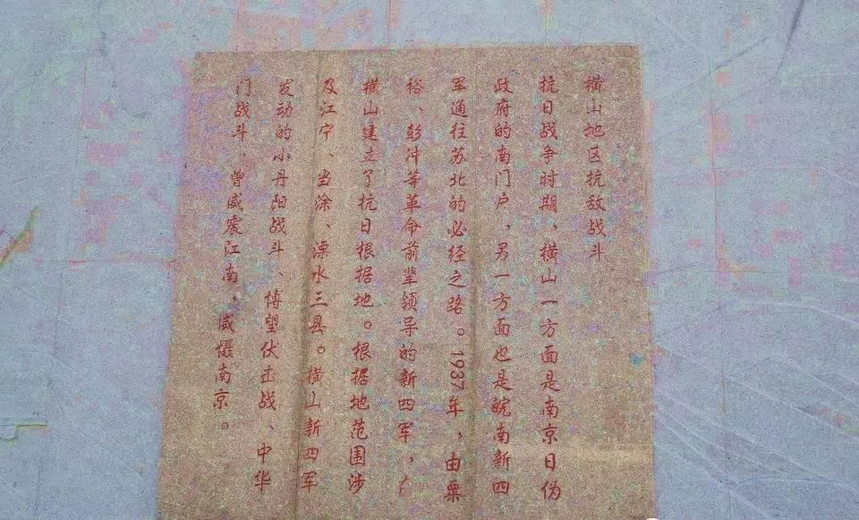 横山地区抗敌战斗
抗日战争时期，横山一方面是南京日伪
政府的南门户，另一方面也是皖南新四
军通往苏北的必经之路。1937年，由粟
裕、彭冲等革命前辈领导的新四军，
横山建立了抗日根据地。根据地范围涉
及江宁、当涂、溧水三县。横山新四军
发动的小丹阳战斗、博望伏击战、中华
门战斗，曾威震江南，威慑南京。